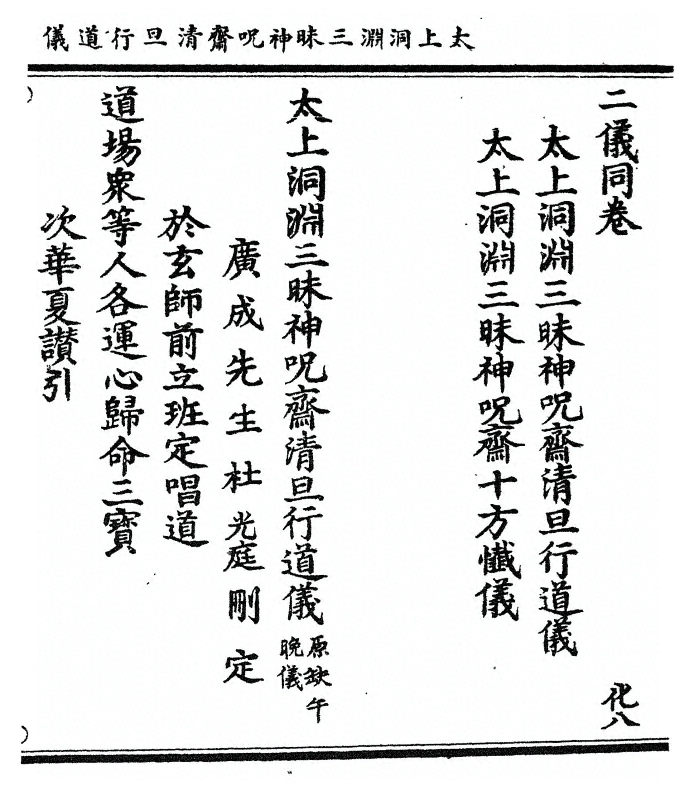 太上洞淵三昧神呪齋清旦行道儀
二儀同卷
化八
太上洞淵三昧神呪齋清旦行道儀
太上洞淵三昧神呪齋十方懺儀
太上洞淵三昧神呪齋清旦行道儀
原缺午
晚儀
廣成先生杜光庭刪定
於玄師前立班定唱道
道場衆等人各運心歸命三寶
次華夏讃引